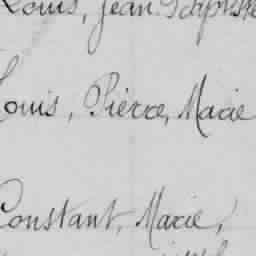 Louis, Jean Baptiste
Louis, Pièrre, Marie
Constant, Marie,